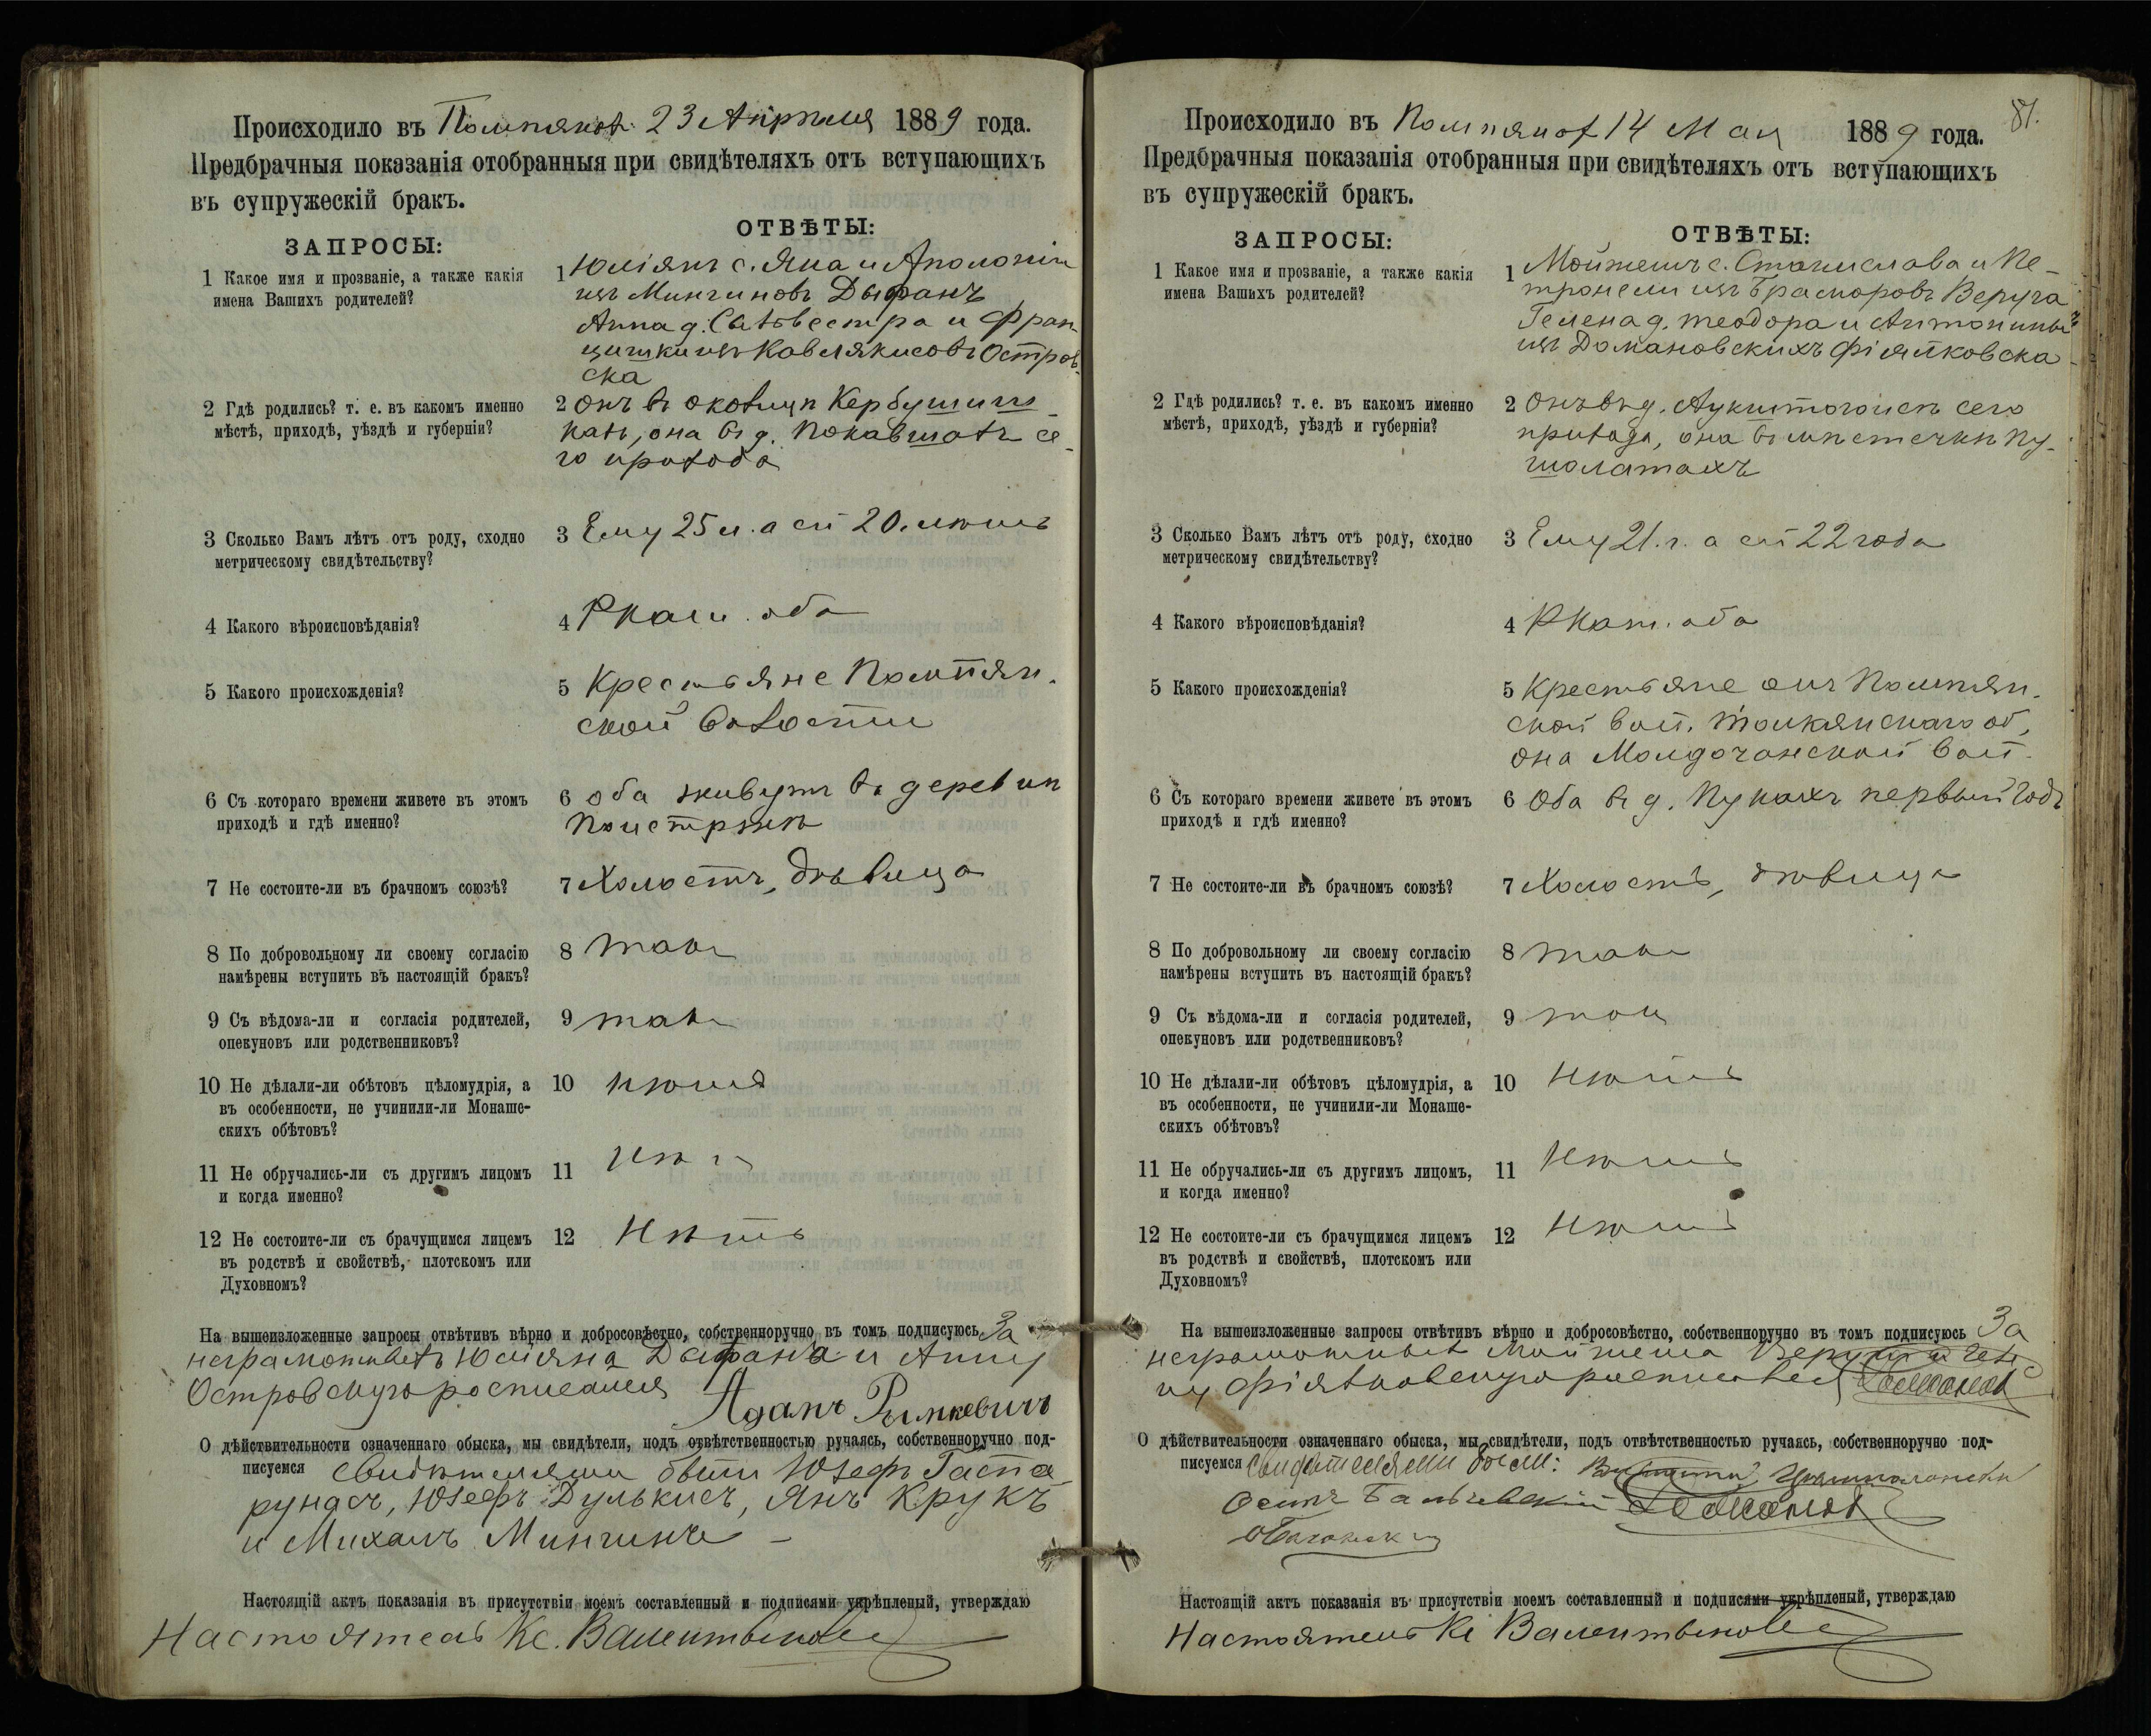 Происходило въ Помпянахъ 23 Апрѣля 1889 года.
Предбрачныя показанія отобранныя при свидѣтеляхъ отъ вступающихъ
въ супружескій бракъ.
ЗАПРОСЫ:
ОТВѢТЫ:
1 Какое имя и прозваніе, а также какія
имена Вашихъ родителей?
1 Юліянъ с. Яна и Аполоніи
изъ Мингиновъ Дыфанъ
Анна д. Сильвестра и Фран-
цишки изъ Ковелякисовъ Остров-
ска
2 Гдѣ родились? т. е. въ какомъ именно
мѣстѣ, приходѣ, уѣздѣ и губерніи?
2 Онъ въ околицѣ
она въ д. се-
го прихода
3 Сколько Вамъ лѣтъ отъ роду, сходно
метрическому свидѣтельству?
3 Ему 25 л. а ей 20. лѣтъ
4 Какого вѣроисповѣданія?
4 Ркат. оба
5 Какого происхожденія?
5 Крестьяне Помпян-
ской волости
6 Съ котораго времени живете въ этомъ
приходѣ и гдѣ именно?
6 Оба живутъ въ деревнѣ
Поистрѣ
7 Не состоите-ли въ брачномъ союзѣ?
7 Холостъ, дѣвица
8 По добровольному ли своему согласію
намѣрены вступить въ настоящій бракъ?
8 такъ
9 Съ вѣдома-ли и согласія родителей,
опекуновъ или родственниковъ?
9 такъ
10 Не дѣлали-ли обѣтовъ цѣломудрія, а
въ особенности, не учинили-ли Монаше-
скихъ обѣтовъ?
10 нѣтъ
11 Не обручались-ли съ другимъ лицомъ
и когда именно?
11 нѣтъ
12 Не состоите-ли съ брачущимся лицемъ
въ родствѣ и свойствѣ, плотскомъ или
Духовномъ?
12 Нѣтъ
На вышеизложенные запросы отвѣтивъ вѣрно и добросовѣстно, собственноручно въ томъ подписуюсь За
неграмотныхъ Юлияна Дыфана и Анну
Островскую росписался
Адамъ Рымкевичъ
О дѣйствительности означеннаго обыска, мы свидѣтели, подъ отвѣтственностью ручаясь, собственноручно под-
писуемся Свидѣтелями были Юзефъ Гаспа-
рунасъ, Юзефъ Дулькисъ, Янъ Крукъ
и Михалъ Мингинъ
Настоящій актъ показанія въ присутствіи моемъ составленный и подписями укрѣпленый, утверждаю
Настоятель Кс. Валентыновичъ
81.
Происходило въ Помпянахъ 14 Мая 1889 года.
Предбрачныя показанія отобранныя при свидѣтеляхъ отъ вступающихъ
въ супружескій бракъ.
ЗАПРОСЫ:
ОТВѢТЫ:
1 Какое имя и прозваніе, а также какія
имена Вашихъ родителей?
1 Мойжешъ с. Станислава и Пе-
тронели изъ Браморовъ Веруга
Гелена д. Теодора и Антонины
изъ Домановскихъ Фіялковска
2 Гдѣ родились? т. е. въ какомъ именно
мѣстѣ, приходѣ, уѣздѣ и губерніи?
2 Онъ въ д. сего
прихода, она въ мѣстечкѣ Пу-
шолатахъ
3 Сколько Вамъ лѣтъ отъ роду, сходно
метрическому свидѣтельству?
3 Ему 21. г. а ей 22 года
4 Какого вѣроисповѣданія?
4 РКат. оба
5 Какого происхожденія?
5 Крестьяне онъ Помпян-
ской вол. об,
она вол.
6 Съ котораго времени живете въ этомъ
приходѣ и гдѣ именно?
6 Оба въ д. первый годъ
7 Не состоите-ли въ брачномъ союзѣ?
7 Холостъ, дѣвица
8 По добровольному ли своему согласію
намѣрены вступить въ настоящій бракъ?
8 такъ
9 Съ вѣдома-ли и согласія родителей,
опекуновъ или родственниковъ?
9 такъ
10 Не дѣлали-ли обѣтовъ цѣломудрія, а
въ особенности, не учинили-ли Монаше-
скихъ обѣтовъ?
10 Нѣтъ
11 Не обручались-ли съ другимъ лицомъ,
и когда именно?
11 Нѣтъ
12 Не состоите-ли съ брачущимся лицемъ
въ родствѣ и свойствѣ, плотскомъ или
Духовномъ?
12 Нѣтъ
На вышеизложенные запросы отвѣтивъ вѣрно и добросовѣстно, собственноручно въ томъ подписуюсь За
неграмотныхъ Мойжеша Веругу и Геле-
ну Фіялковскую росписался
О дѣйствительности означеннаго обыска, мы свидѣтели, подъ отвѣтственностью ручаясь, собственноручно под-
писуемся Свидѣтелями были:
Осипъ
Настоящій актъ показанія въ присутствіи моемъ составленный и подписями укрѣпленый, утверждаю
Настоятель Кс Валентыновичъ